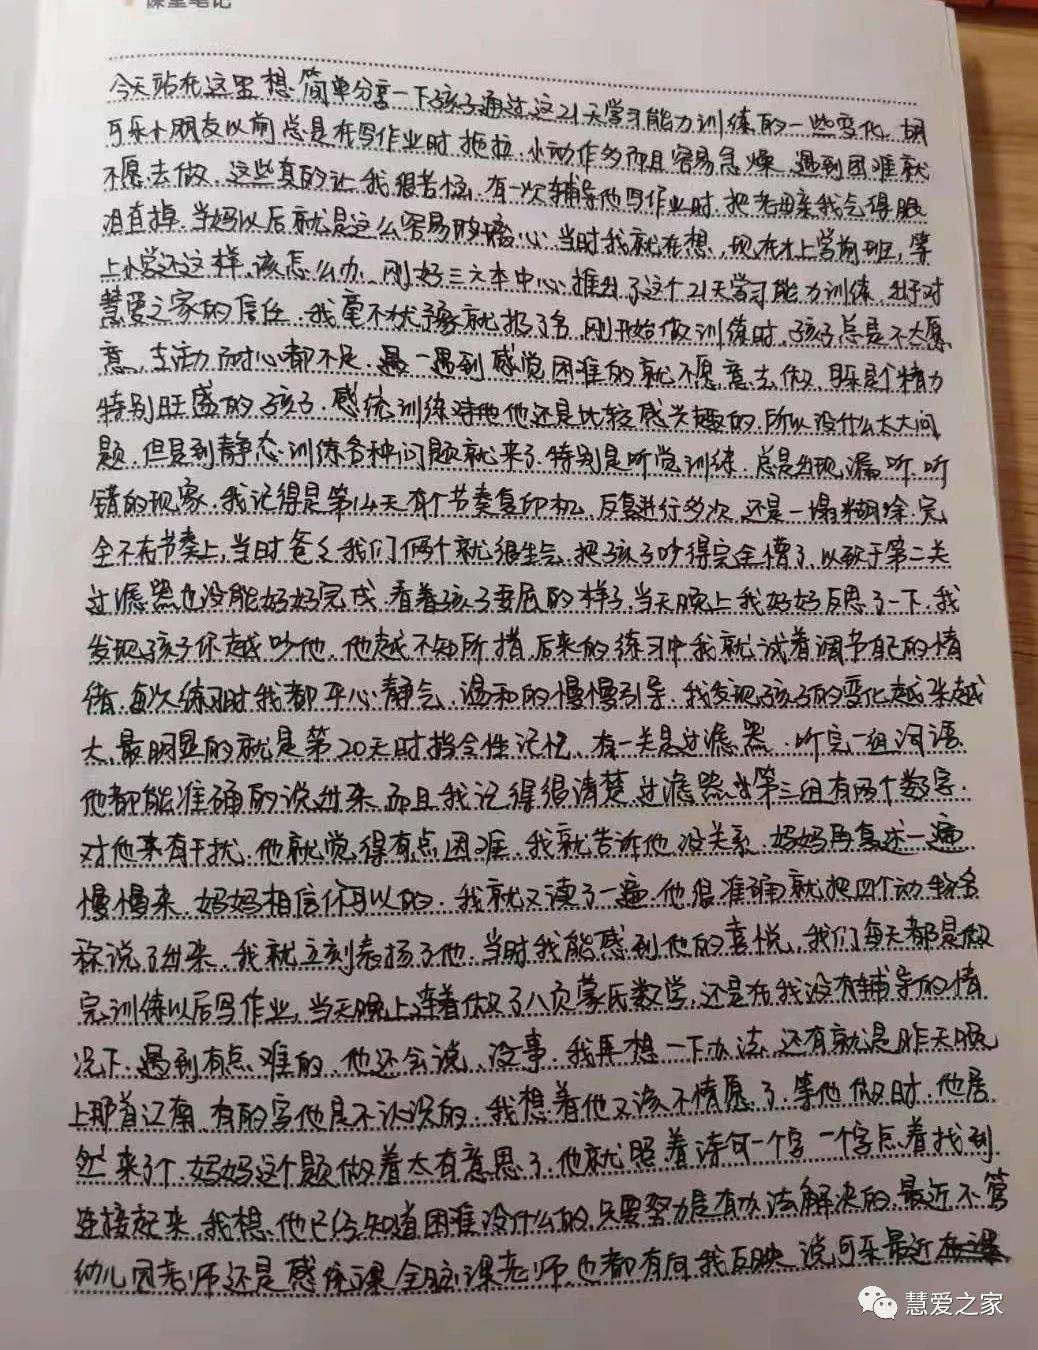 课堂笔记
今天站在这里想简单分享一下孩子通过这21天学习能力训练的一些变化.胡
可乐小朋友以前总是在写作业时拖拉.小动作多而且容易急燥.遇到困难就
不愿去做.这些真的让我很苦恼.有一次辅导他写作业时.把老母亲我气得眼
泪直掉.当妈以后就是这么容易的心.当时我就在想,现在才上学前班,等
上小学还这样.该怎么办.刚好三六本中心推出了这个21天学习能力训练.出于对
慧爱之家的信任.我毫不犹豫就报了名.刚开始做训练时.孩子总是不太愿
意.主动力耐心都不足.遇一遇到感觉困难的就不愿意去做.可乐是个精力
特别旺盛的孩子.感统训练对他他还是比较感兴趣的.所以没什么太大问
题.但是到静态训练各种问题就来了.特别是听觉训练.总是出现漏听.听
错的现象.我记得是第14天有个节奏复印机.反复进行多次.还是一塌糊涂.完
全不在节奏上,当时爸爸我们俩个就很生气.把孩子吵得完全懵了.以致于第二关
过滤器也没能好好完成.看着孩子委屈的样子,当天晚上我好好反思了一下.我
发现孩子你越吵他.他越不知所措.后来的练习中我就试着调节自己的情
绪.每次练习时我都平心静气.温和的慢慢引导.我发现孩子的变化越来越
大.最明显的就是第20天时指令性记忆.有一关是过滤器.听完一组词语
他都能准确的说出来.而且我记得很清楚过滤器第三组有两个数字.
对他来有干扰.他就觉得有点困难.我就告诉他没关系.妈妈再复述一遍
慢慢来.妈妈相信你可以的.我就又读了一遍.他很准确就把四个动物名
称说了出来.我就立刻表扬了他.当时我能感到他的喜悦.我们每天都是做
完训练以后写作业,当天晚上连着做了八页蒙氏数学,还是在我没有辅导的情
况下.遇到有点难的.他还会说.没事.我再想一下办法.还有就是昨天晚
上那首江南.有的字他是不认识的.我想着他又该不情愿了.等他做时.他居
然来了个.妈妈这个题做着太有意思了.他就照着诗句一个字一个字点着找到
连接起来.我想.他已经知道困难没什么的.只要努力是有办法解决的.最近不管
幼儿园老师还是感统课全脑课老师.也都有向我反映.说可乐最近
慧爱之家